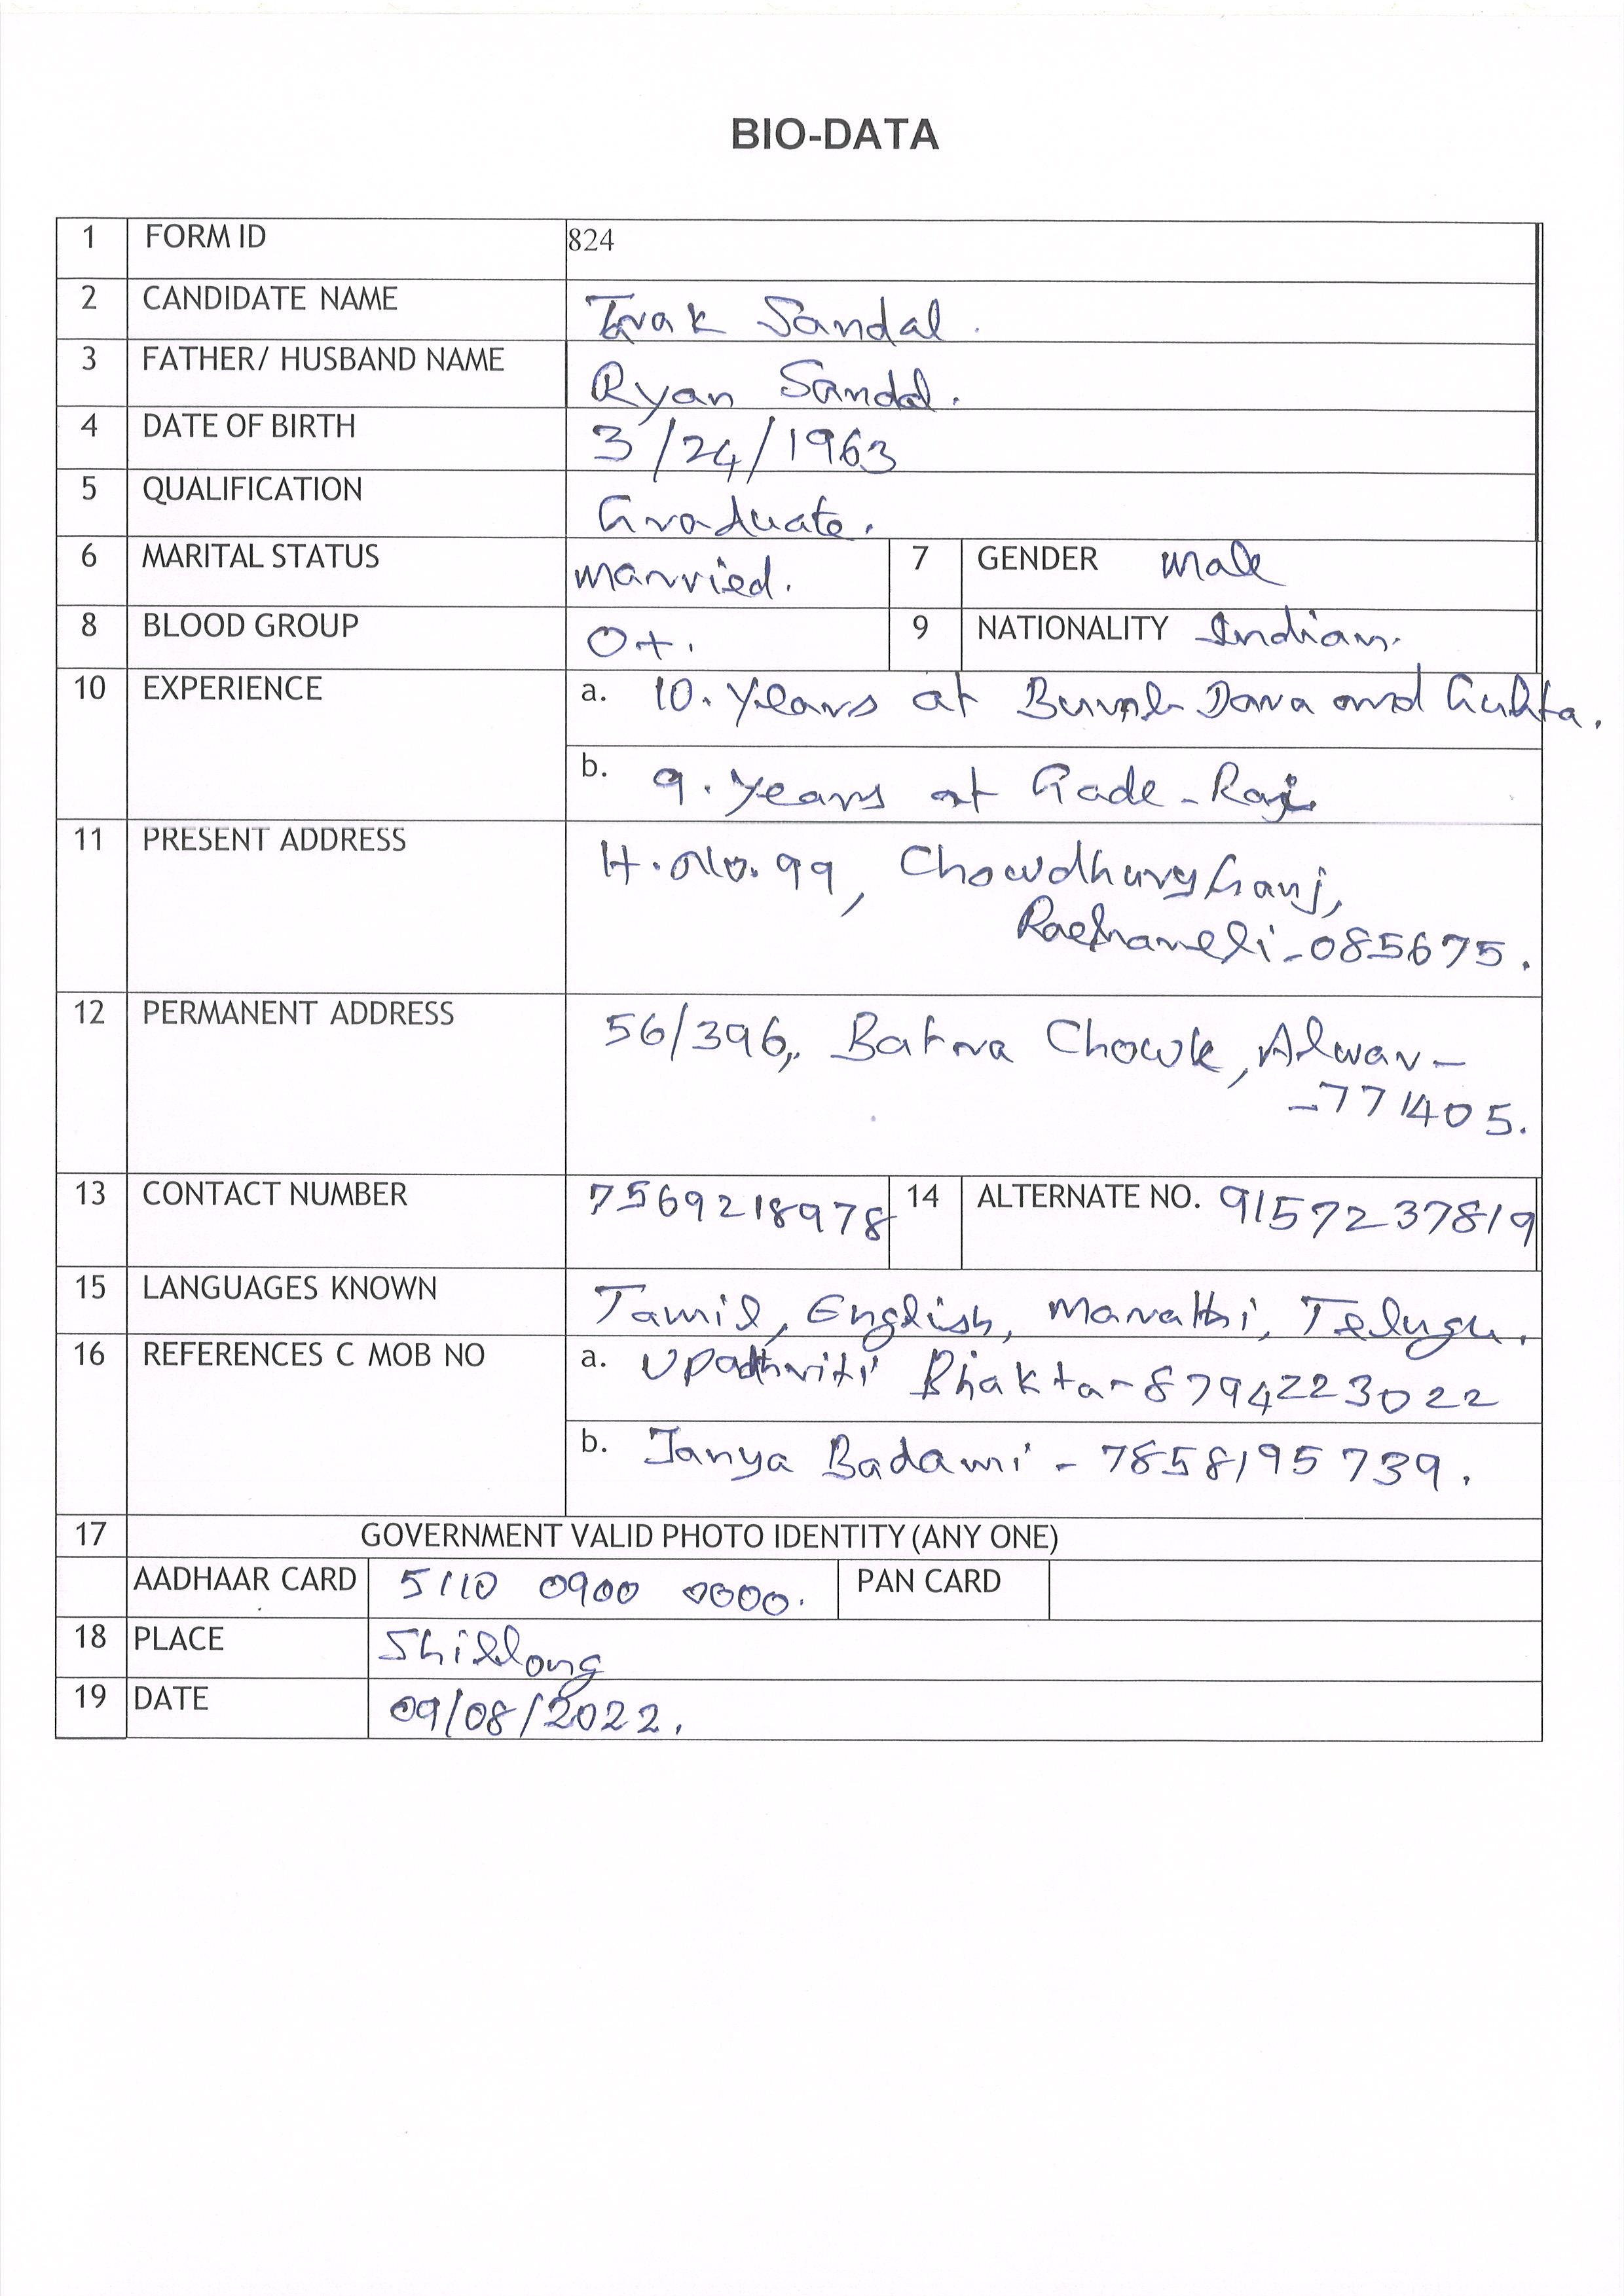 BIO-DATA
1 FORM ID 824
2 CANDIDATE NAME Sandal.
3 FATHER/ HUSBAND NAME Ryan Sandal.
4 DATE OF BIRTH 3/24/1963
5 QUALIFICATION Graduate.
6 MARITAL STATUS married. 7 GENDER male
8 BLOOD GROUP O+. 9 NATIONALITY Indian.
10 EXPERIENCE a. 10. Years at Dara and
b. 9. Years at Gade - Raj
11 PRESENT ADDRESS H.No. 99, Chowdhury Ganj,
Raebareli - 085675.
12 PERMANENT ADDRESS 56/396, Batra Chowk, Alwar -
- 771405.
13 CONTACT NUMBER 7569218978 14 ALTERNATE NO. 91572 37819
15 LANGUAGES KNOWN Tamil, English, Marathi, Telugu.
16 REFERENCES C MOB NO a. Upadhriti Bhakta - 8794223022
b. Janya Badami - 7858195739.
17 GOVERNMENT VALID PHOTO IDENTITY (ANY ONE)
AADHAAR CARD 5110 0900 0000. PAN CARD
18 PLACE Shillong
19 DATE 09/08/2022.